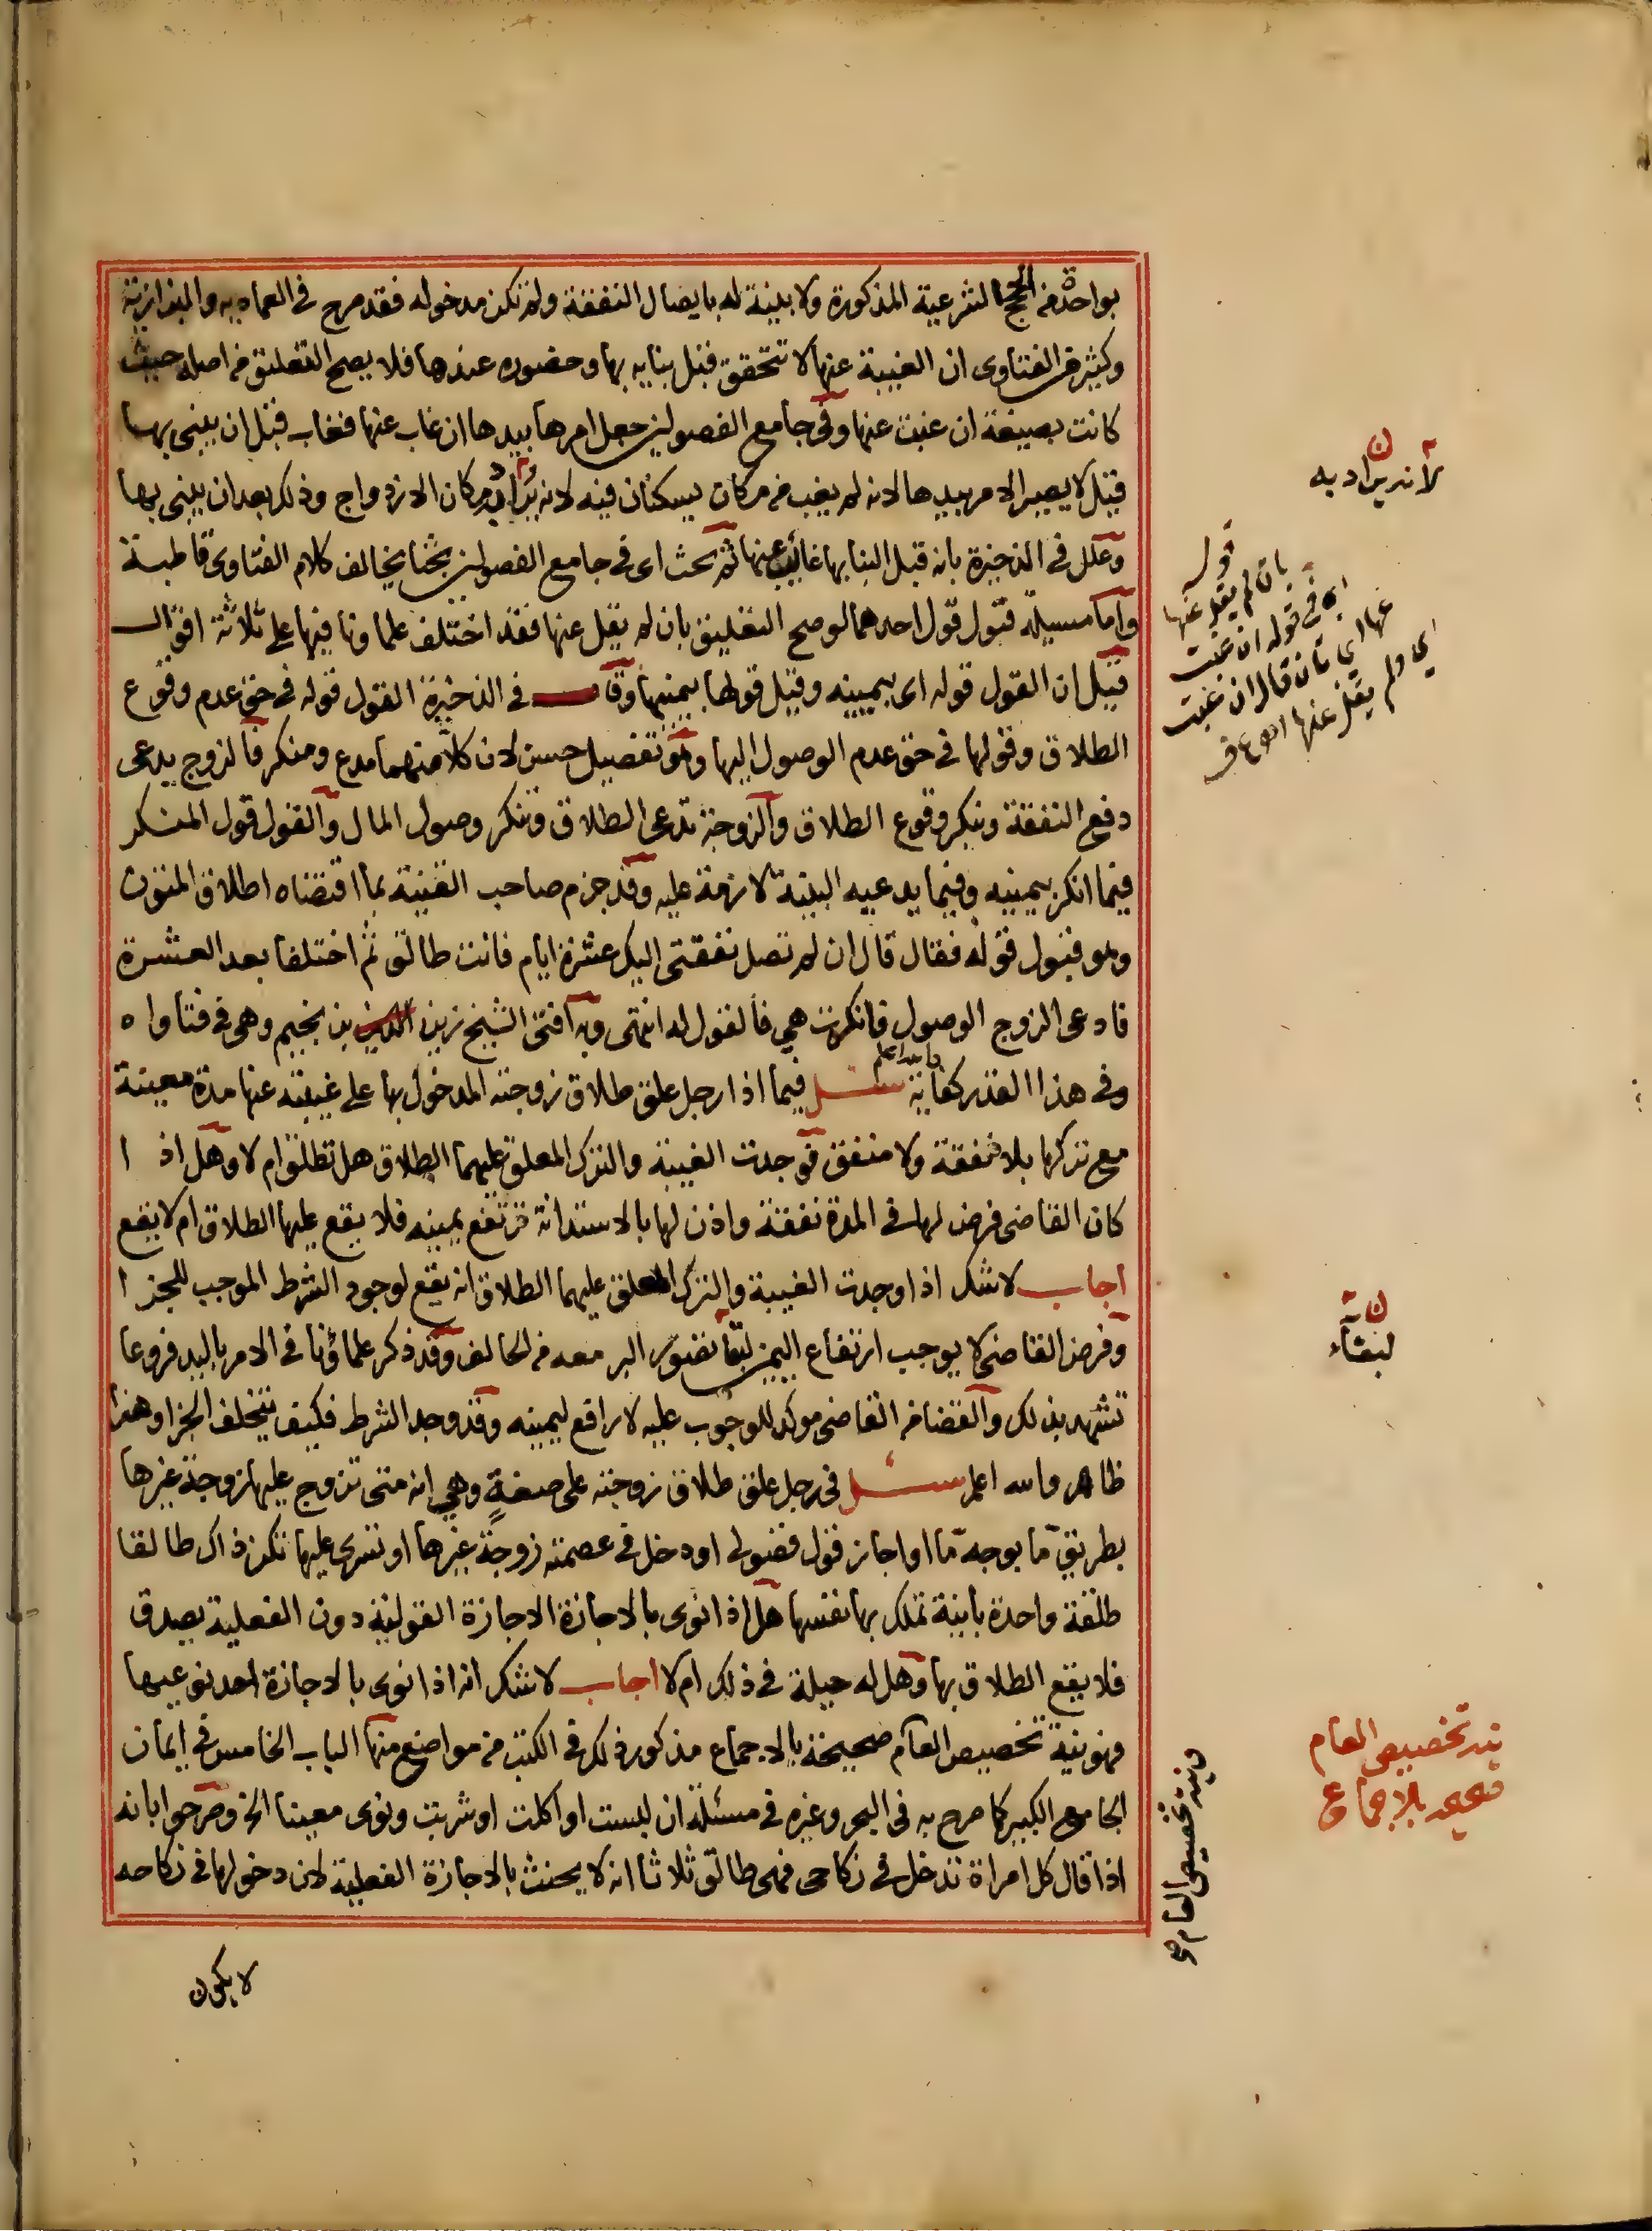 بواحدة من الحجج الشرعية المذكورة ولا بينة له بايصال النفقة ولم تكن مدخوله فقد صرح في العماديه والبزازية
وكثير من الفتاوى ان الغيبة عنها لا تتحقق قبل بنايه بها وحضوره عندها فلا يصح التعليق من اصله حيث
كانت بصيغة ان غبت عنها وفي جامع الفصولين جعل امرها بيدها ان غاب عنها فغاب قبل ان يبني بها
قيل لا يصير الامر بيدها لانه لم يغب من مكان يسكنان فيه لانه يراد به مكان الازدواج وذلك بعد ان يبني بها
وعلل في الذخيرة بانه قبل البنا بها غائب عنها ثم بحث اى في جامع الفصولين بحثا يخالف كلام الفتاوى قاطبة
واما مسيلة قبول قول احدهما لو صح التعليق بان لم يقل عنها فقد اختلف علماونا فيها على ثلاثة اقوال
قيل ان القول قوله اى بيمينه وقيل قولها بيمينها وقال في الذخيرة القول قوله في حق عدم وقوع
الطلاق وقولها في حق عدم الوصول اليها وهو تفصيل حسن لان كلا منهما مدع ومنكر فالزوج يدعى
دفع النفقة وينكر وقوع الطلاق والزوجة تدعى الطلاق وتنكر وصول المال والقول قول المنكر
فيما انكر بيمينه وفيما يدعيه البينة لازمة عليه وقد جزم صاحب القنية بما اقتضاه اطلاق المتون
وهو قبول قوله فقال قال ان لم تصل نفقتى اليك عشرة ايام فانت طالق ثم اختلفا بعد العشرة
فادعى الزوج الوصول فانكرت هي فالقول له انتهى وبه افتى الشيخ زين الدين بن نجيم وهى في فتاواه
وفي هذا القدر كفاية والله اعلم سئل فيما اذا رجل علق طلاق زوجته المدخول بها على غيبته عنها مدة معينة
مع تركها بلا نفقة ولا منفق فوجدت الغيبة والترك المعلق عليهما الطلاق هل تطلق ام لا وهل اذا
كان القاضى فرض لها في المدة نفقة واذن لها بالاستدانة ترتفع يمينه فلا يقع عليها الطلاق ام لا يقع
اجاب لا شك اذا وجدت الغيبة والترك المعلق عليهما الطلاق انه يقع لوجود الشرط الموجب للجزا
وفرض القاضى لا يوجب ارتفاع اليمين لبقا تصور البر معه من الحالف وقد ذكر علماؤنا في الامر باليد فروعا
تشهد بذلك والقضا من القاضى موكد للوجوب عليه لا رافع ليمينه وقد وجد الشرط فكيف يتخلف الجزا وهذا
ظاهر والله اعلم سئل في رجل علق طلاق زوجته على صفة وهي انه متى تزوج عليها زوجة غيرها
بطريق ما بوجه ما او اجاز قول فضولى او دخل في عصمته زوجة غيرها او تسرى عليها تكن ذاك طالقا
طلقة واحدة باينة تملك بها نفسها هل اذا نوى بالاجازة الاجازة القولية دون الفعلية يصدق
فلا يقع الطلاق بها وهل له حيلة في ذلك ام لا اجاب لا شك انه اذا نوى بالاجازة احد نوعيها
فهو نية تخصيص العام صحيحة بالاجماع مذكور ذلك في الكتب من مواضع منها الباب الخامس في ايمان
الجامع الكبير كما صرح به في البحر وغيره في مسئلة ان لبست او اكلت او شربت ونوى معينا الخ وصرحوا بانه
اذا قال كل امراة تدخل في نكاحى فهى طالق ثلاثا انه لا يحنث بالاجازة الفعلية لان دخولها في نكاحه
لا يكون
ن
لانه يراد به
قوله
بان لم يقل عنها
اي في قوله ان غبت
عنها اي بان قال ان غبت
اي ولم يقل عنها
ن
لبقاء
نية تخصيص العام
صحيحه بالاجماع
نية تخصيص العام